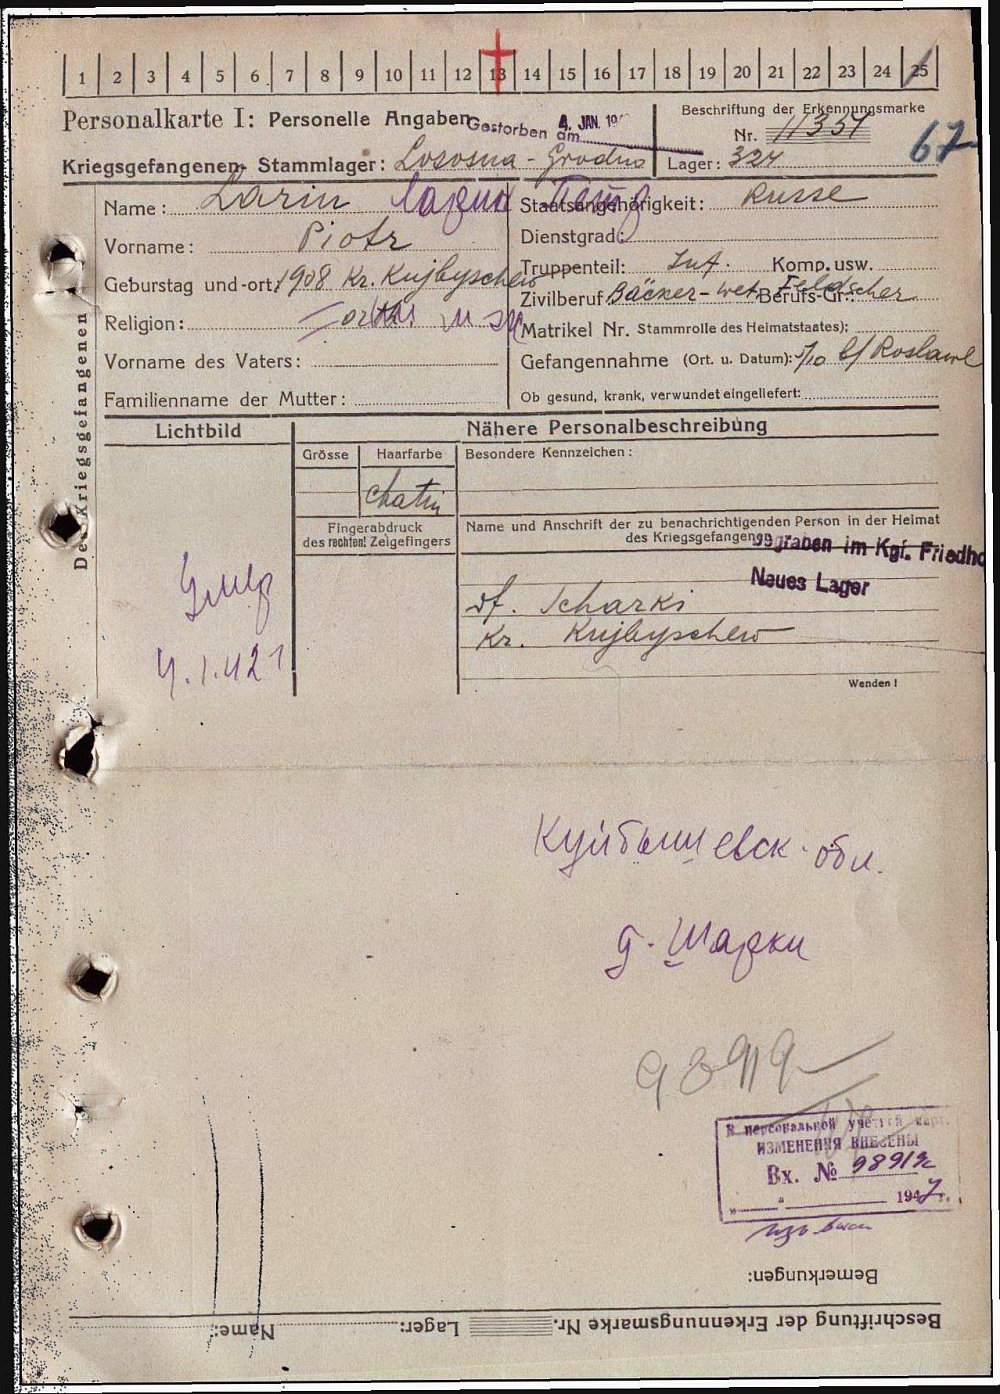 1 2 3 4 5 6 7 8 9 10 11 12 13 14 15 16 17 18 19 20 21 22 23 24 25
Personalkarte I: Personelle Angaben
Gestorben am 4. JAN. 19
Beschriftung der Erkennungsmarke
Nr. 11337
67
Kriegsgefangenen- Stammlager: Lososna - Grodno
Lager: 324
Des Kriegsgefangenen
Name: Larin Ларин Пётр
Staatsangehörigkeit: Russe
Vorname: Piotr
Dienstgrad:
Geburtstag und -ort: 1908 Kr. Kujbyschew
Truppenteil: Inf. Komp. usw.
Zivilberuf: Bäcker - vet. Feldscher Berufs-Gr.:
Religion: orth.
Matrikel Nr. Stammrolle des Heimatstaates):
Vorname des Vaters:
Gefangennahme (Ort. u. Datum): 5/10 b/ Roslawl
Familienname der Mutter:
Ob gesund, krank, verwundet eingeliefert:
Lichtbild
Nähere Personalbeschreibung
Grösse Haarfarbe Besondere Kennzeichen:
chatin
Fingerabdruck
des rechten! Zeigefingers
Name und Anschrift der zu benachrichtigenden Person in der Heimat
des Kriegsgefangenen
Begraben im Kgf. Friedho
Neues Lager
Умер
4.1.42 г
df. Scharki
Kr. Kujbyschew
Wenden!
Куйбышевск. обл.
д. Шарки
98919
В персональной учетной карт.
ИЗМЕНЕНИЯ ВНЕСЕНЫ
Вх. № 98919с
1947 г.
Bemerkungen:
Beschriftung der Erkennungsmarke Nr. Lager: Name: